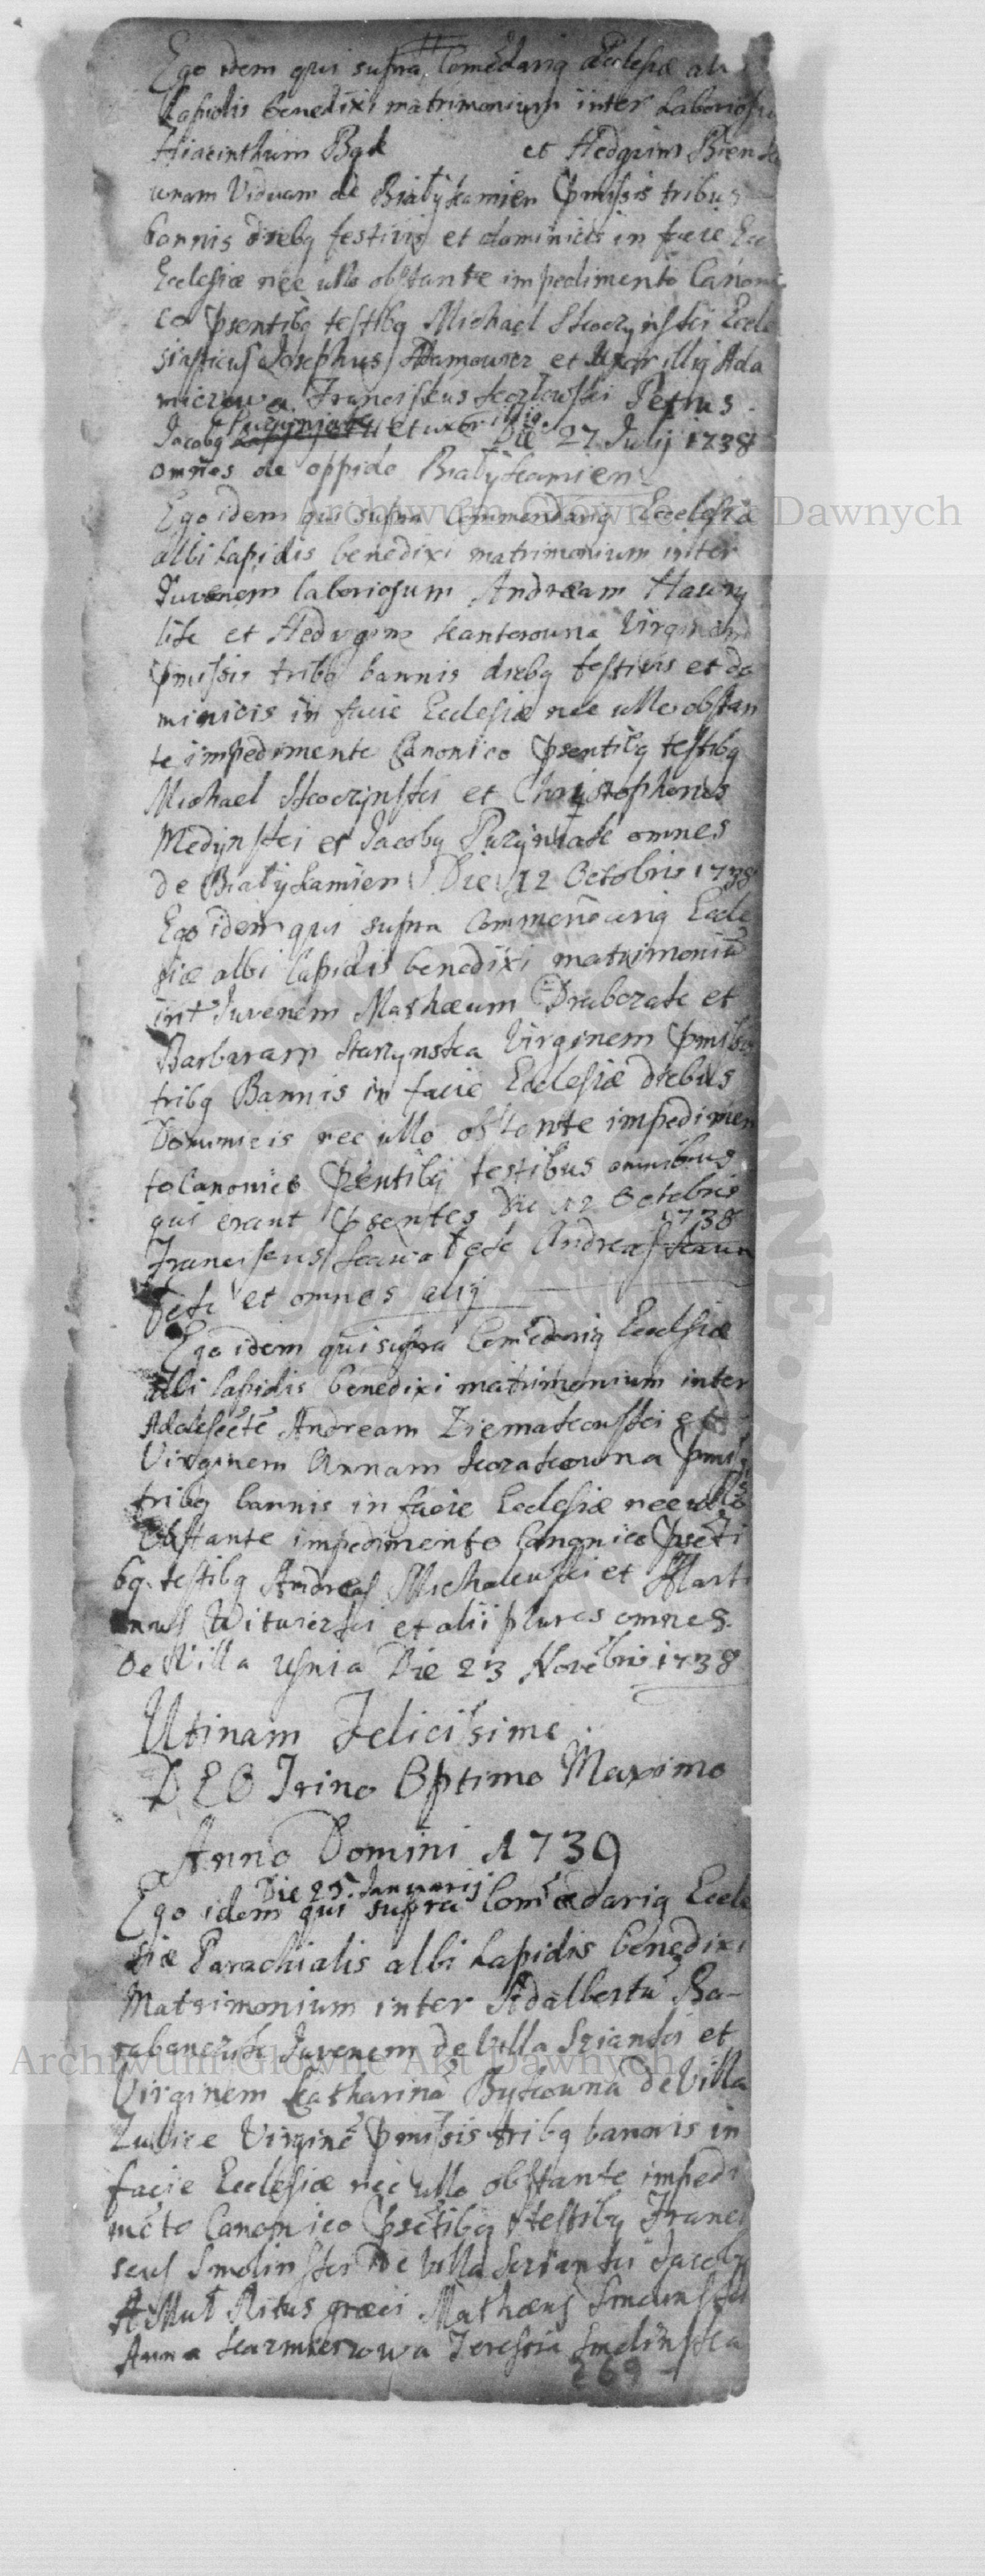 Ego idem qui supra Comēdariq Ecclesiæ al
Lapidis benedixi matrimonium inter Laboriosū
Hiacinthum Bąk et Hedvim Bien
unam Viduam de Białykamien Pmissis tribus
bannis diebq festivis et dominicis in facie Ecc
Ecclesiæ nec ullo obstante impedimento Canoni
co Psentibq testibq Michael Skoczynski Eccle
siasticus Josephus Adamowicz et Uxor illiq Ada
miczowa Franciscus Kozłowski Petrus
Jacobq Puzyniate et uxor illiq Die 27 Julij 1738
omnes de oppido Białykamien
Ego idem qui supra Commendariq Ecclesiæ
albi Lapidis benedixi matrimonium inter
Juvenem laboriosum Andream Hawry
lik et Hedvigim Kantorowna Virginem
Pmissis tribq bannis diebq festivis et do
minicis in facie Ecclesiæ nec ullo obstan
te impedimento Canonico Psentibq testibq
Michael Skoczynski et Christophorus
Medynski et Jacobq Puzyniate omnes
de Białykamien Die 12 Octobris 1738
Ego idem qui supra Commendariq Eccle
siæ albi lapidis benedixi matrimoniū
int Juvenem Mathæum Draborate et
Barbaram Starzynska Virginem Pmiss
tribq Bannis in facie Ecclesiæ diebus
Dominicis nec ullo obstante impedimen
to Canonico Psentibq testibus omnibus
qui erant Psentes Die 12 Octobris
1738
Franciscus Kawałek Andreas Kawa
łek et omnes alij
Ego idem qui supra Comēdariq Ecclesiæ
albi lapidis benedixi matrimonium inter
Adolescētē Andream Ziemakowski et
Virginem Annam Kozakowna Pmiss
tribq bannis in facie Ecclesiæ nec ullo
Obstante impedimento Canonico Psēti
bq testibq Andreas Michalewski et Marti
nus Witwicki et alii plures omnes
de Villa Usnia Die 23 Novēbris 1738
Utinam Felicissime
DEO Trino Optimo Maximo
Anno Domini 1739
Die 25 Januarij
Ego idem qui supra Comēdariq Eccle
siæ Parachialis albi Lapidis benedixi
Matrimonium inter Adalbertū Ba-
rabanczuk Juvenem de Villa Scianki et
Virginem Katharinā Bykowna de Villa
Zulice Virginē Pmissis tribq bannis in
facie Ecclesiæ nec ullo obstante impedi
mēto Canonico Psētibq testibq Franci
scus Smolinski de Villa Scianki Jacobq
Ritus græci Mathæus Smolinski
Anna Kazmierzowa Teressia Smolinska
269
Archiwum Główne Akt Dawnych
Archiwum Główne Akt Dawnych